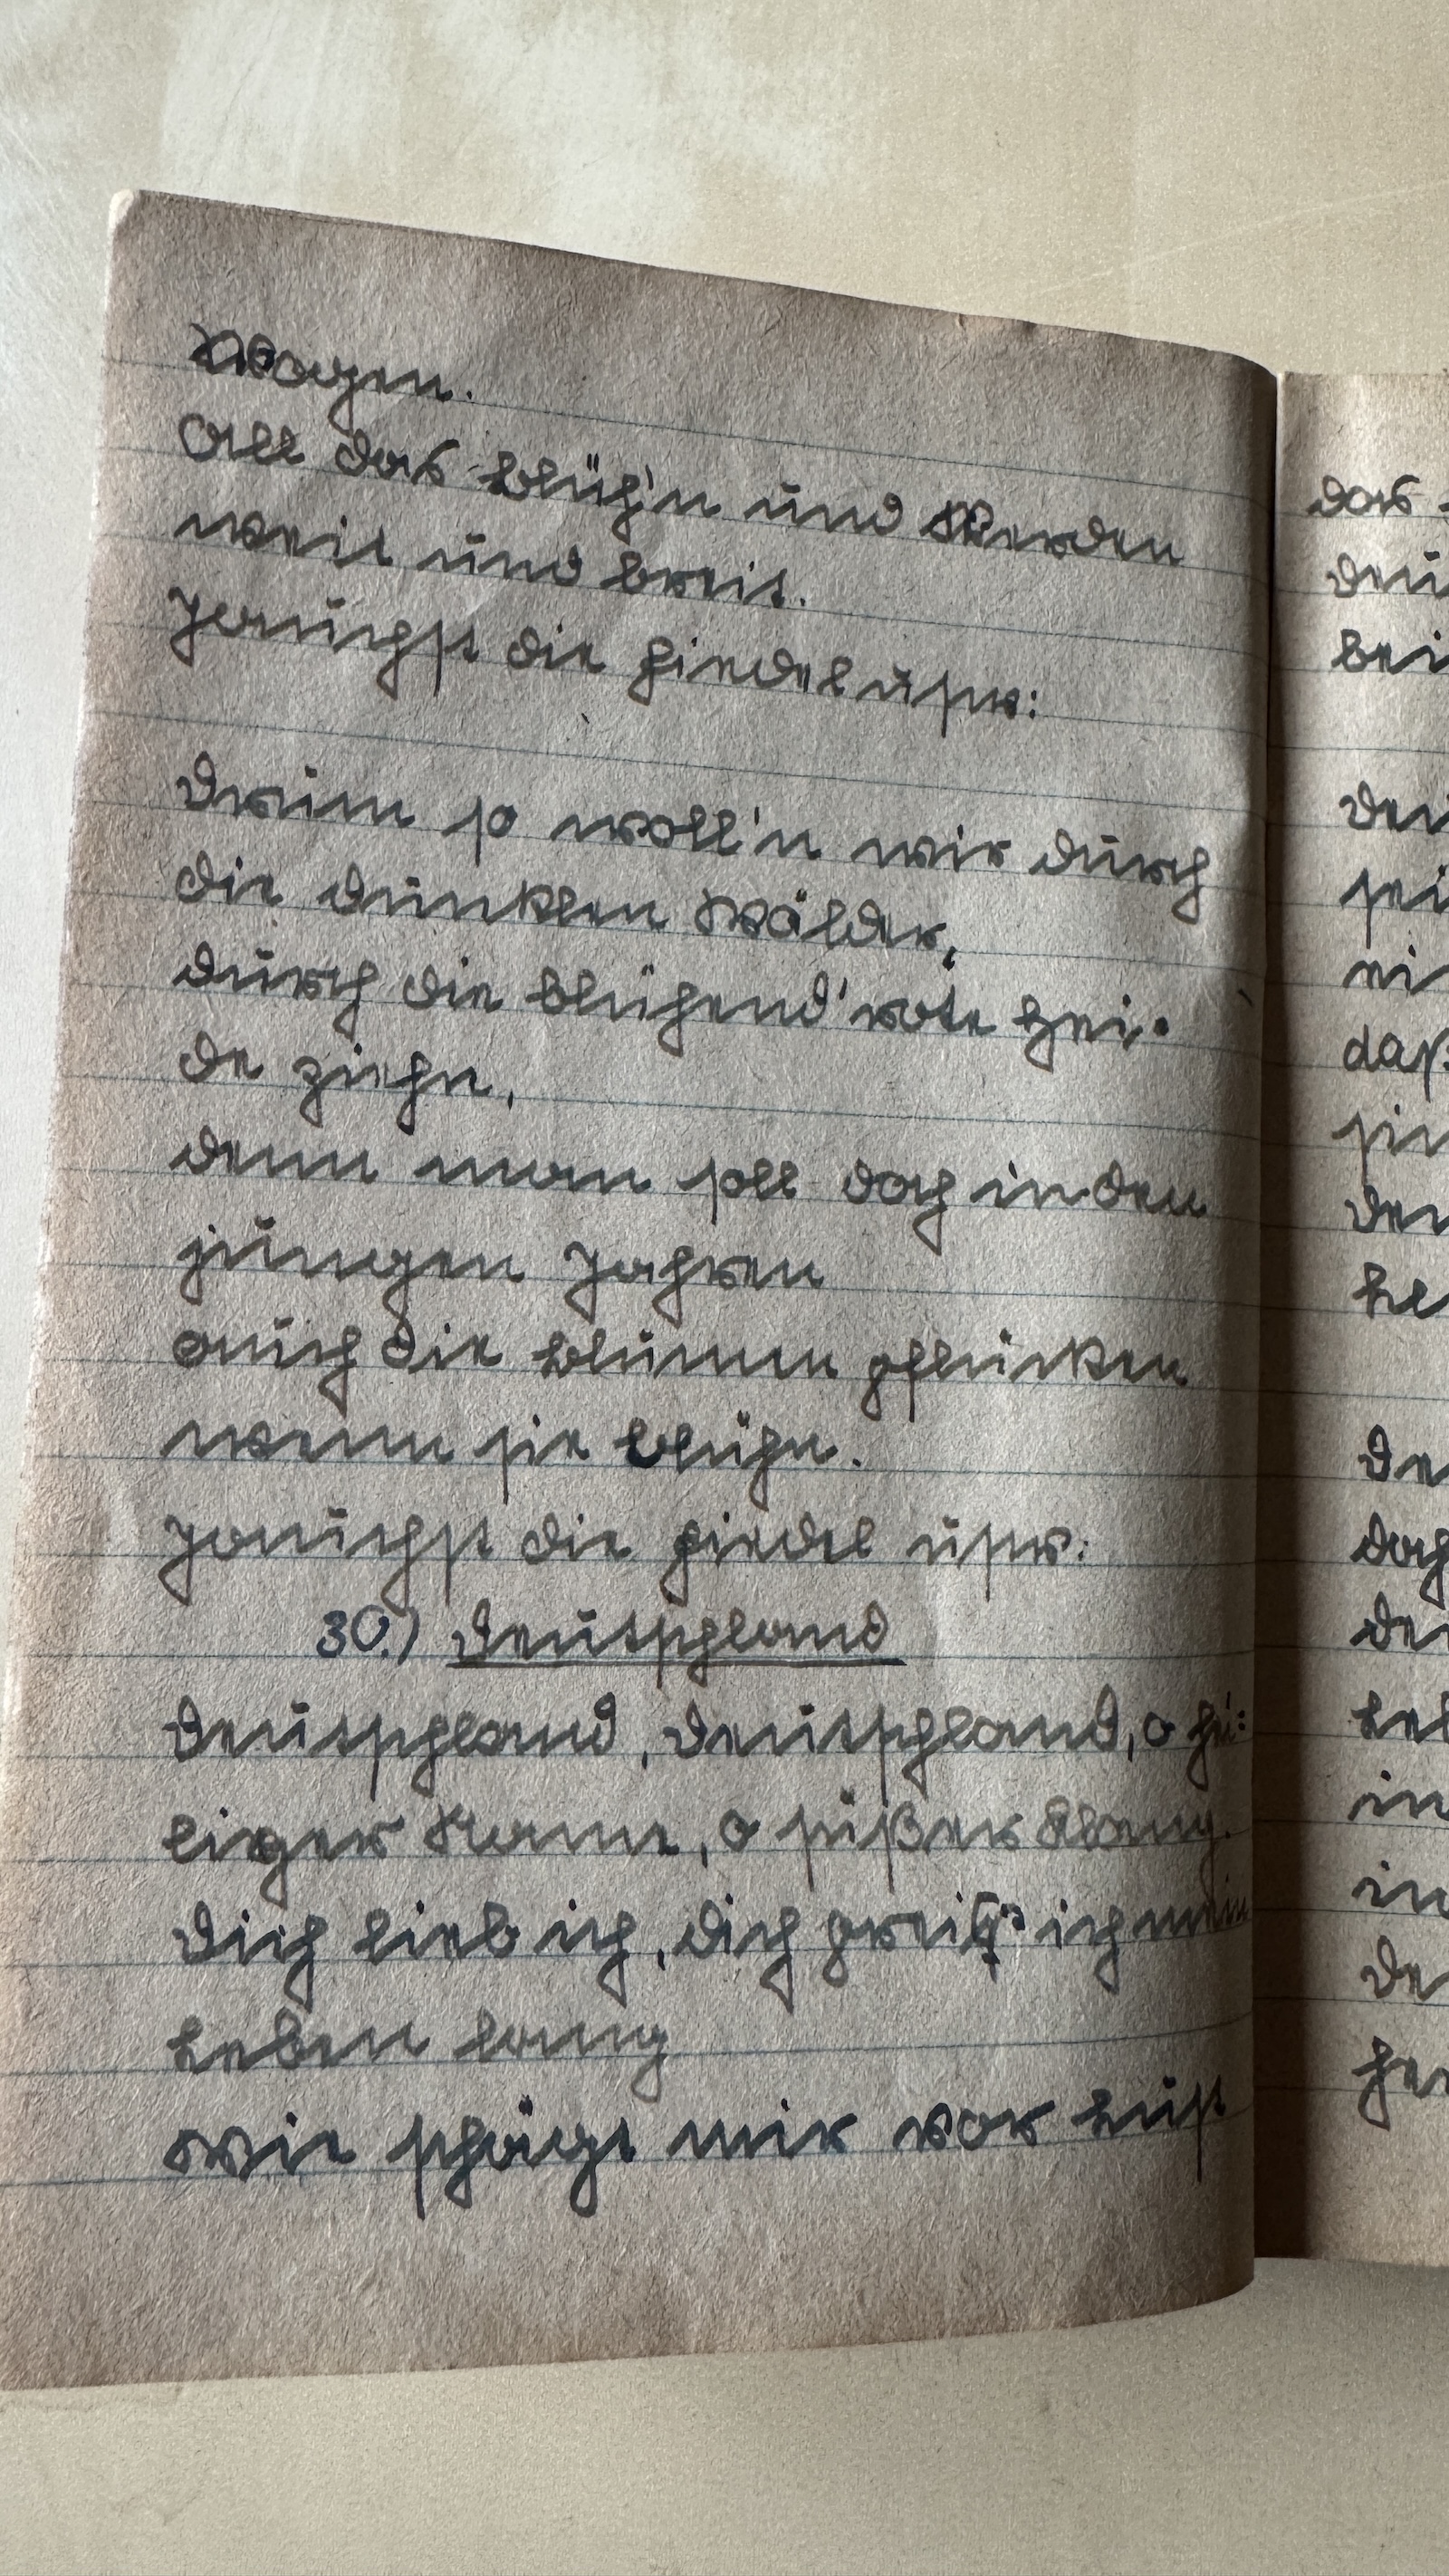 Wogen.
All das Blüh'n und Werden
weit und breit.
Jauchzt die Fiedel usw:
Drum so woll'n wir durch
die dunklen Wälder,
durch die blühend' rote Hei-
de ziehn,
denn man soll doch in den
jungen Jahren
auch die Blumen pflücken
wenn sie blühn.
Jauchzt die Fiedel usw:
30.) Deutschland
Deutschland, Deutschland, o hei:
liger Name, o süßer Klang.
Dich lieb ich, dich preis' ich mein
Leben lang
wie schägt mir vor Lust